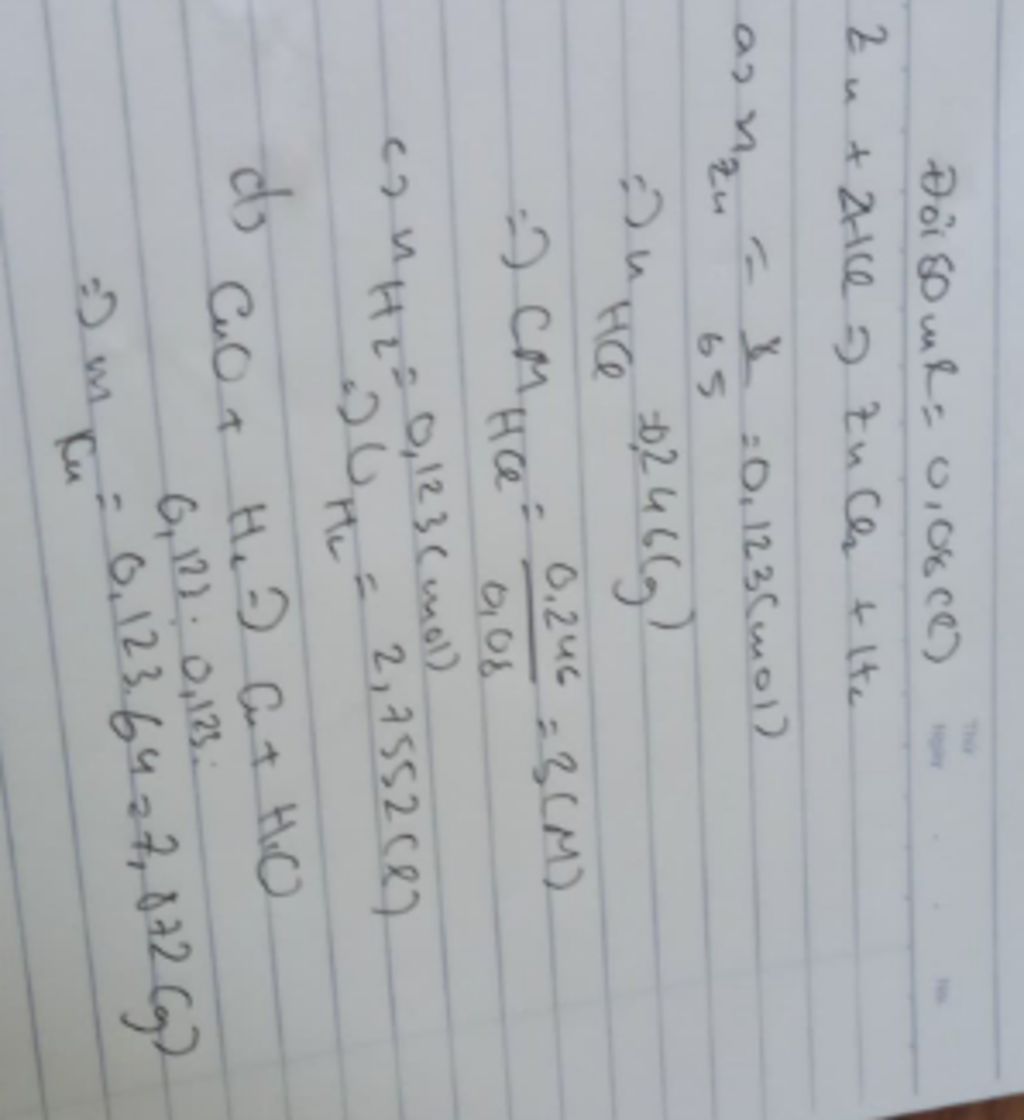 Đổi 80ml = 0,08 (l)
Zn + 2HCl => ZnCl₂ + H₂
a) n Zn = 8/65 = 0,123 (mol)
=> n HCl = 0,246 (g)
=> CM HCl = 0,246/0,08 = 3 (M)
c) n H₂ = 0,123 (mol)
=> V H₂ = 2,7552 (l)
d) CuO + H₂ => Cu + H₂O
0,123 : 0,123 :
=> m Cu = 0,123.64 = 7,872 (g)